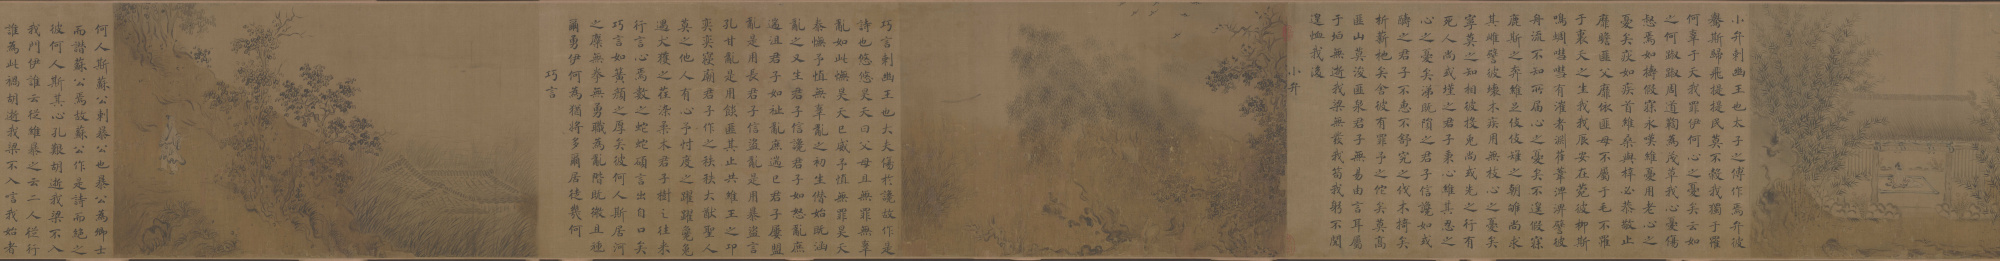 小弁刺幽王也太子之傅作焉弁彼
鸒斯歸飛提提民莫不穀我獨于罹
何辜于天我罪伊何心之憂矣云如
之何踧踧周道鞫為茂草我心憂傷
惄焉如擣假寐永嘆維憂用老心之
憂矣疢如疾首維桑與梓必恭敬止
靡瞻匪父靡依匪母不屬于毛不罹
于裏天之生我我辰安在菀彼柳斯
鳴蜩嘒嘒有漼者淵萑葦淠淠譬彼
舟流不知所屆心之憂矣不遑假寐
鹿斯之奔維足伎伎雉之朝雊尚求
其雌譬彼壞木疾用無枝心之憂矣
寧莫之知相彼投兔尚或先之行有
死人尚或墐之君子秉心維其忍之
心之憂矣涕既隕之君子信讒如或
醻之君子不惠不舒究之伐木掎矣
析薪扡矣舍彼有罪予之佗矣莫高
匪山莫浚匪泉君子無易由言耳屬
于垣無逝我梁無發我笱我躬不閱
遑恤我後
小弁
巧言刺幽王也大夫傷於讒故作是
詩也悠悠昊天曰父母且無罪無辜
亂如此憮昊天已威予慎無罪昊天
泰憮予慎無辜亂之初生僭始既涵
亂之又生君子信讒君子如怒亂庶
遄沮君子如祉亂庶遄已君子屢盟
亂是用長君子信盜亂是用暴盜言
孔甘亂是用餤匪其止共維王之卭
奕奕寢廟君子作之秩秩大猷聖人
莫之他人有心予忖度之躍躍毚兔
遇犬獲之荏染柔木君子樹之往來
行言心焉數之蛇蛇碩言出自口矣
巧言如簧顏之厚矣彼何人斯居河
之麋無拳無勇職為亂階既微且尰
爾勇伊何為猶將多爾居徒幾何
巧言
何人斯蘇公刺暴公也暴公為卿士
而譖蘇公焉故蘇公作是詩而絕之
彼何人斯其心孔艱胡逝我梁不入
我門伊誰云從維暴之云二人從行
誰為此禍胡逝我梁不入唁我始者